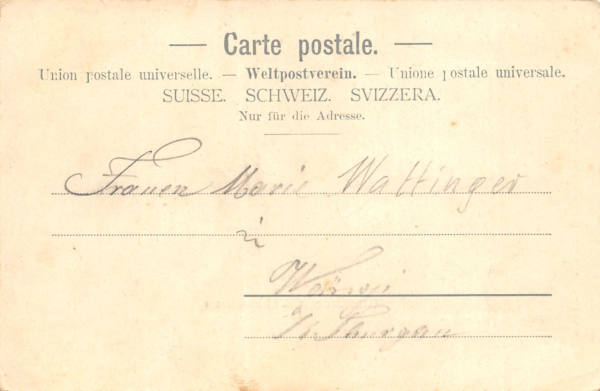 — Carte postale. —
Union postale universelle. — Weltpostverein. — Unione postale universale.
SUISSE. SCHWEIZ. SVIZZERA.
Nur für die Adresse.
Frauen Marie Wattinger
in
Wängi
Kt. Thurgau